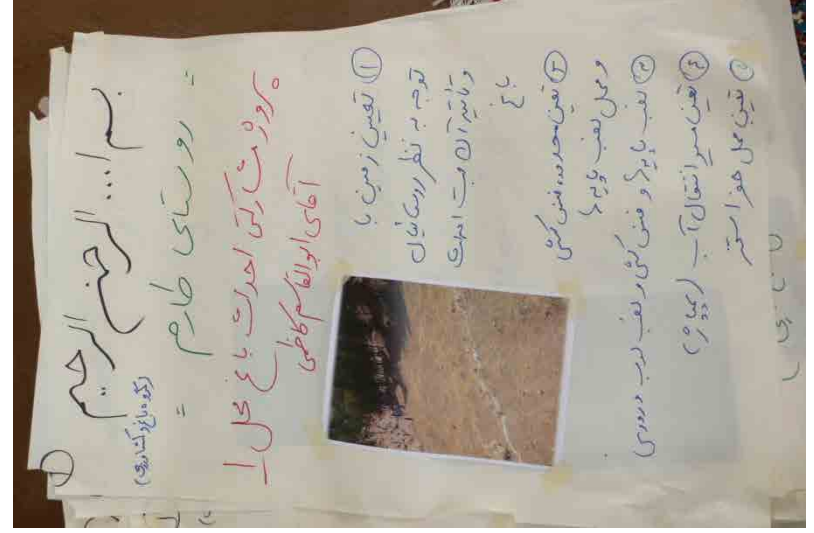 ①
بسم ا... الرحمن الرحیم
(گروه باغ و کشاورزی)
= روستای طارم =
پروژه مشارکتی احداث باغ محل ۱
آقای ابوالقاسم کاظمی
① تعیین زمین با
توجه به نظر روستائیان
و تائید آن جهت احداث
باغ
② تعیین محدوده فنس کشی
و محل نصب پایه ها
③ نصب پایه ها و فنس کشی و نصب درب ورودی
④ تعیین مسیر انتقال آب (پمپاژ)
⑤ تعیین محل حفر استخر